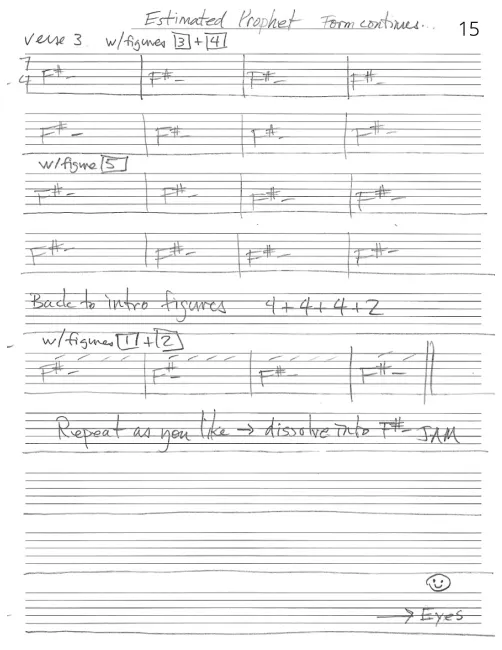 Estimated Prophet Form continues... 15
Verse 3 w/figures [3] + [4]
7
4 F#- F#- F#- F#-
F#- F#- F#- F#-
w/figure [5]
F#- F#- F#- F#-
F#- F#- F#- F#-
Back to intro figures 4+4+4+2
w/figures [1] + [2]
F#- F#- F#- F#-
Repeat as you like → dissolve into F#- JAM
→ Eyes